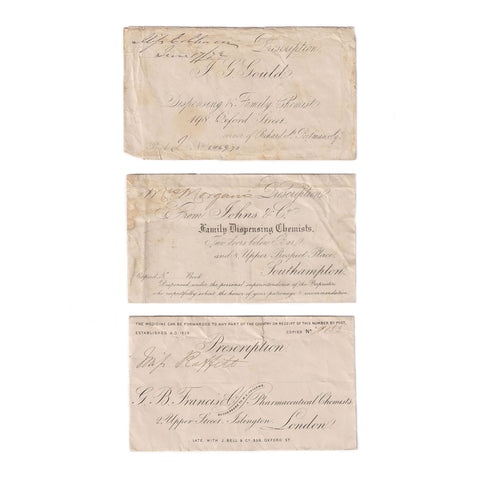 June 17/22 Prescription
J G Gould
Dispensing & Family Chemist
198 Oxford Street
corner of Orchard St. Portman Sq.
Book J No
Mrs Morgan's Prescription
From Johns & Co.
Family Dispensing Chemists,
Two doors below Bar,
and 8 Upper Prospect Place,
Southampton.
Copied No Book
Dispensed under the personal superintendence of the Proprietor
who respectfully solicit the honor of your patronage & recommendation
THE MEDICINE CAN BE FORWARDED TO ANY PART OF THE COUNTRY ON RECEIPT OF THIS NUMBER BY POST.
ESTABLISHED A.D. 1819. COPIED No
Prescription
Miss
G. B. Francis & Co. Pharmaceutical Chemists
2, Upper Street, Islington,
London
LATE WITH J. BELL & CO 338, OXFORD ST.